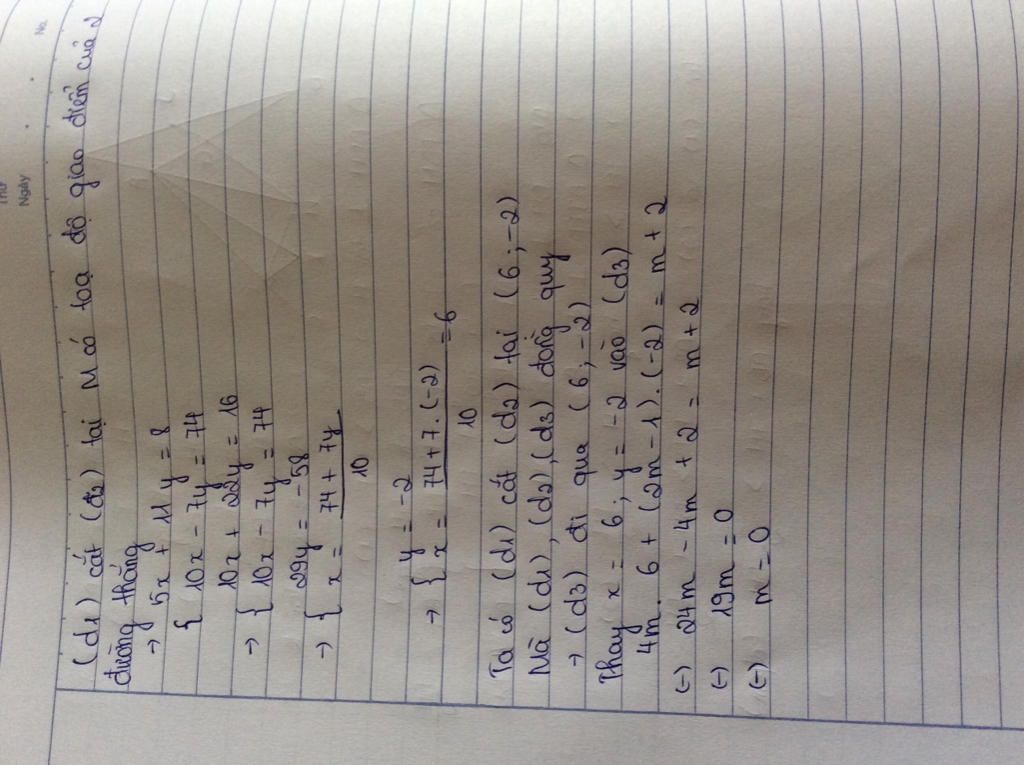 Thứ
Ngày
No.
(d1) cắt (d2) tại M có toạ độ giao điểm của 2
đường thẳng
→ { 5x + 11y = 8
10x - 7y = 74
→ { 10x + 22y = 16
10x - 7y = 74
→ { 29y = -58
x = 74 + 7y
10
→ { y = -2
x = 74 + 7.(-2) = 6
10
Ta có (d1) cắt (d2) tại (6 ; -2)
Mà (d1), (d2), (d3) đồng quy
→ (d3) đi qua (6 ; -2)
Thay x = 6 ; y = -2 vào (d3)
4m. 6 + (2m - 1).(-2) = m + 2
(-) 24m - 4m + 2 = m + 2
(-) 19m = 0
(-) m = 0